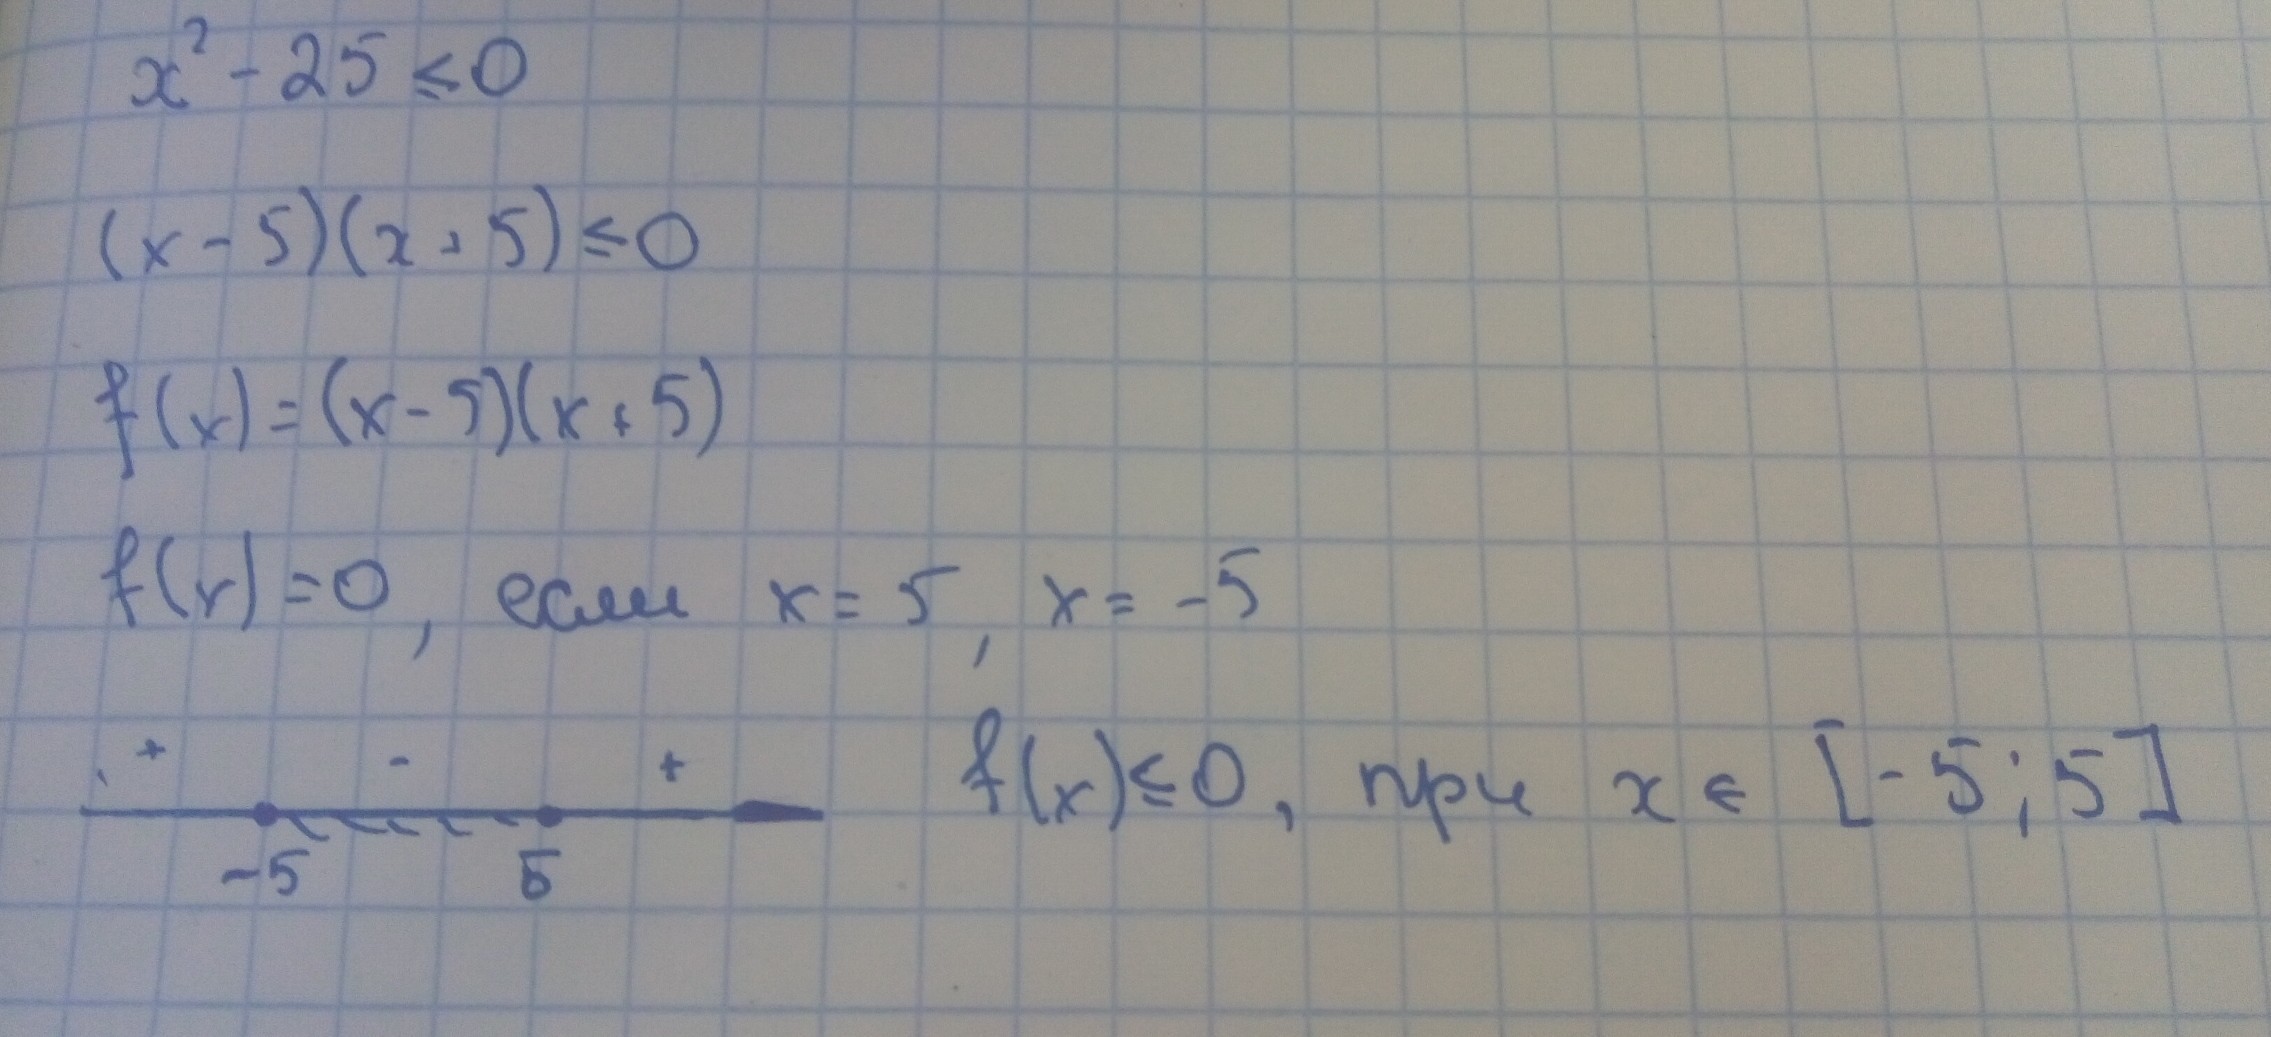 x² - 25 ≤ 0
(x - 5)(x + 5) ≤ 0
f(x) = (x - 5)(x + 5)
f(x) = 0, если x = 5, x = -5
+ - +
-5 5
f(x) ≤ 0, при x ∈ [-5; 5]